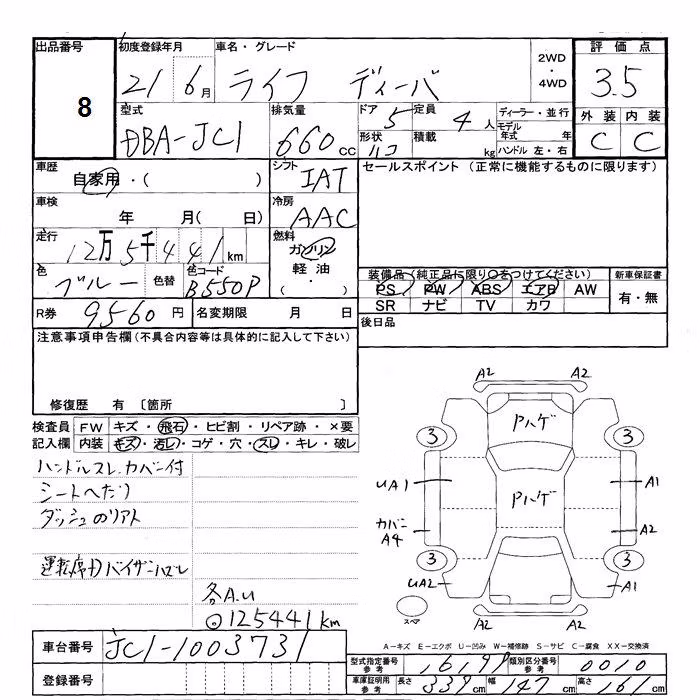 出品番号 8
初度登録年月 21 6月
車名・グレード ライフ ディーバ
2WD・4WD
評価点 3.5
外装 C 内装 C
型式 DBA-JC1
排気量 660cc
ドア 5 定員 4人
形状 ハコ 積載 kg
ディーラー・並行
モデル年式 年
ハンドル 左・右
車歴 自家用・( )
シフト IAT
セールスポイント (正常に機能するものに限ります)
車検 年 月( 日)
冷房 AAC
走行 12万5千441km
燃料 ガソリン 軽油 ( ・ )
色 ブルー 色替 色コード B550P
装備品(純正品に限り○をつけてください) 新車保証書
PS PW ABS エアB AW 有・無
SR ナビ TV カワ
R券 9560円 名変期限 月 日
後日品
注意事項申告欄(不具合内容等は具体的に記入して下さい)
修復歴 有 〔箇所 〕
検査員 FW キズ・飛石・ヒビ割・リペア跡・×要
記入欄 内装 キズ・汚レ・コゲ・穴・スレ・キレ・破レ
ハンドルスレ.カバー付
シートへたり
ダッシュのリアト
運転席
バイザーハズレ
各A.U
125441km
A2 A2
Pハゲ
3 3
UA1 Pハゲ A1
カバー A4 A2
3 3
UA2 A1
スペア A2 A2
A-キズ E-エクボ U-凹み W-補修跡 S-サビ C-腐食 XX-交換済
車台番号 JC1-1003731
型式指定番号 参考 類別区分番号 参考 0010
登録番号
車庫証明用 参考 長さ 339cm 幅 147cm 高さ 161cm